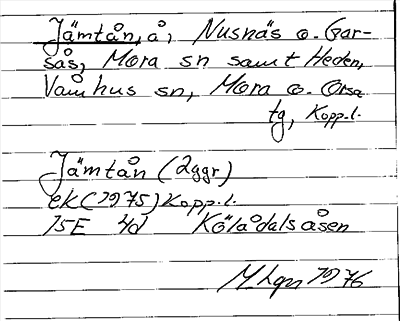 Jämtån, å, Nusnäs o. Gar-
sås, Mora sn samt Heden,
Våmhus sn, Mora o. Orsa
tg, Kopp.l.
Jämtån (2ggr)
ek (1975) Kopp.l.
15E 4d Kölådalsåsen
MLgn 1976